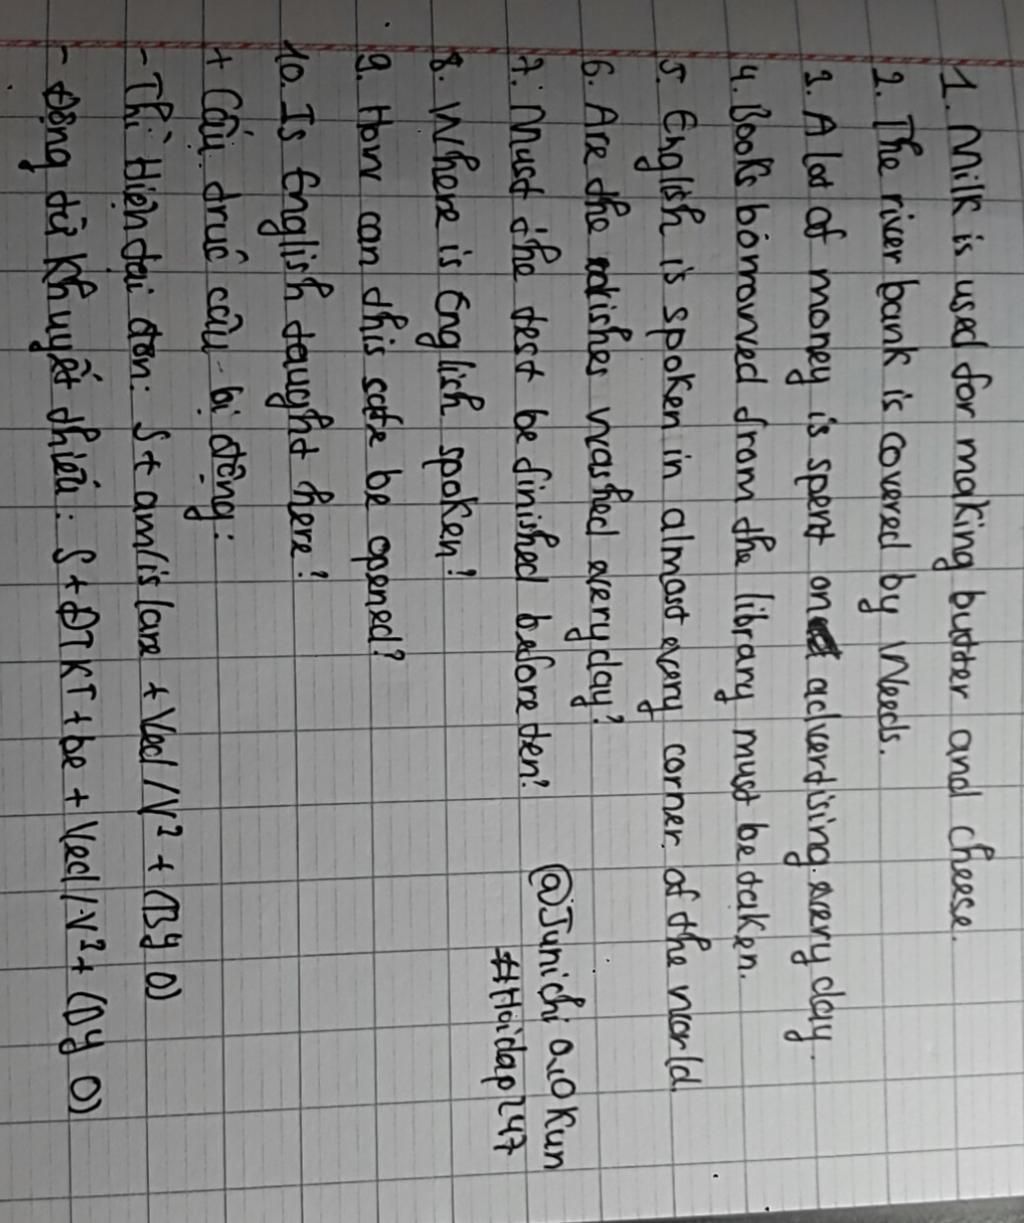 1. Milk is used for making butter and cheese.
2. The river bank is covered by Weeds.
3. A lot of money is spent on advertising every day.
4. Books borrowed from the library must be taken.
5. English is spoken in almost every corner of the world.
6. Are the dishes washed every day?
7. Must the test be finished before ten?
8. Where is English spoken?
9. How can this safe be opened?
10. Is English taught here?
@Junichi a_0 Kun
#Hoidap247
+ Cấu trúc câu bị động:
- Thì hiện tại đơn: S + am/is/are + Ved/V³ + (By O)
- Động từ khuyết thiếu: S + ĐTKT + be + Ved/V³ + (By O)